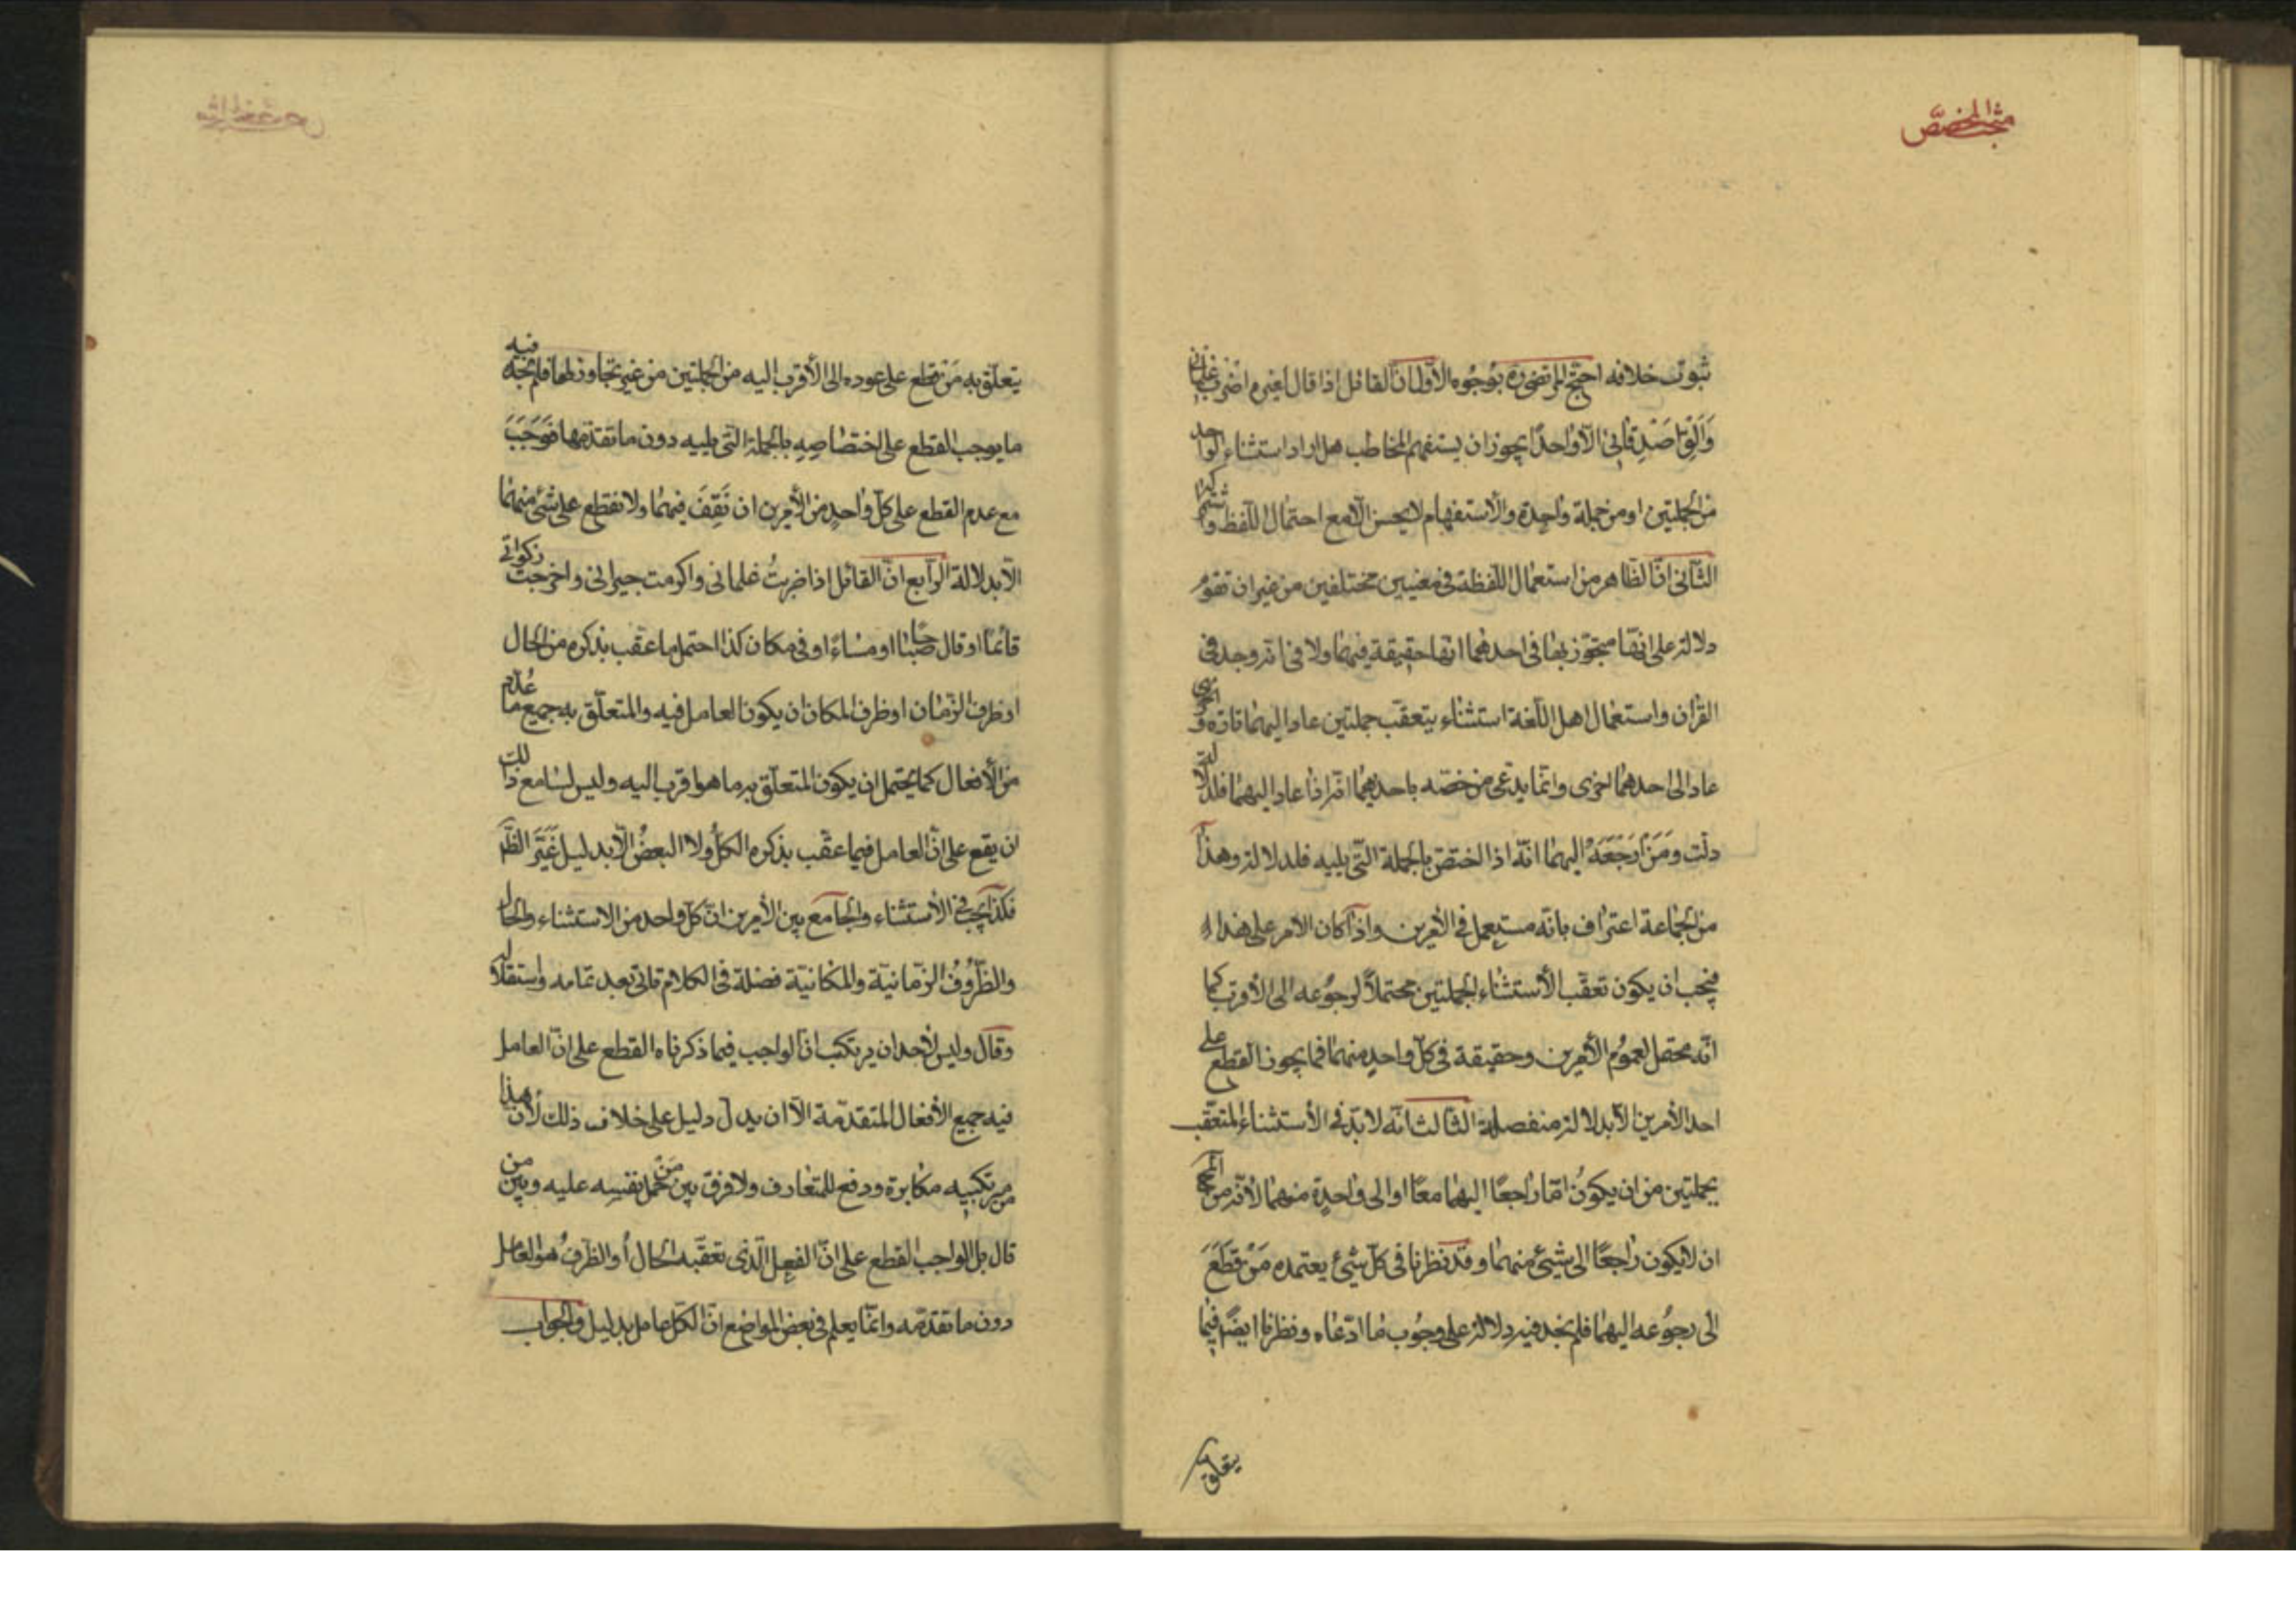 مبحث المخصص
ثبوت خلافه احتج المرتضى ره بوجوه الأول ان القائل اذا قال لغيره اضرب غلمانى
والق اصدقائى الا واحدًا يجوز ان يستفهم المخاطب هل اراد استثناء الواحد
من الجملتين او من جملة واحدة والاستفهام لا يحسن الا مع احتمال اللفظ واشتراكه
الثانى ان الظاهر من استعمال اللفظة فى معنيين مختلفين من غير ان تقوم
دلالة على انها متجوز بها فى احدهما انها حقيقة فيهما ولا خلاف انه وجد فى
القرآن واستعمال اهل اللغة استثناء يتعقب جملتين عاد اليهما تارة و اخرى
عاد الى احدهما اخرى وانما يدعى من خصه باحدهما انه اذا عاد اليهما فلدلالة
دلت ومن ارجعه اليهما انه اذا اختص بالجملة التى يليه فلدلالة وهذا
من الجماعة اعتراف بانه مستعمل فى الأمرين واذا كان الأمر على هذا
فيجب ان يكون تعقب الأستثناء الجملتين محتملاً لرجوعه الى الأقرب كما
انه محتمل لعموم الأمرين وحقيقة فى كل واحد منهما فما يجوز القطع على
احد الأمرين الا بدلالة منفصلة الثالث انه لا بد فى الأستثناء المتعقب
بجملتين من ان يكون اما راجعًا اليهما معًا او الى واحدة منهما لأنه من المحال
ان لا يكون راجعًا الى شيئ منهما وقد نظرنا فى كل شيئ يعتمده من قطع
الى رجوعه اليهما فلم نجد فيه دلالة على وجوب ما ادعاه ونظرنا ايضًا فيما
يتعلق
يتعلق به من يقطع على عوده الى الأقرب اليه من الجملتين من غير تجاوز لها فلم نجد فيه
ما يوجب القطع على اختصاصه بالجملة التى يليه دون ما تقدمها فوجب
مع عدم القطع على كل واحد من الأمرين ان نقف فيهما ولا نقطع على شئ منهما
الا بدلالة الرابع ان القائل اذا ضربت غلمانى واكرمت جيرانى واخرجت زكواتى
قائما او قال صباحًا او مساءً او فى مكان كذا احتمل ما عقب بذكره من الحال
او ظرف الزمان او ظرف المكان ان يكون العامل فيه والمتعلق به جميع ما عُدم
من الأفعال كما يحتمل ان يكون المتعلق به ما هو اقرب اليه وليس لسامع ذلك
ان يقع على ان العامل فيما عقب بذكره الكل ولا البعض الا بدليل غير الظَّ
فكذا يجب فى الأستثناء والجامع بين الأمرين ان كل واحد من الاستثناء والحال
والظروف الزمانية والمكانية فضلة فى الكلام تاتى بعد تمامه واستقلاله
وقال وليس لأحد ان يرتكب ان الواجب فيما ذكرناه القطع على ان العامل
فيه جميع الأفعال المتقدمة الا ان يدل دليل على خلاف ذلك لأن هذا
من مرتكبيه مكابرة ودفع للمتعارف ولا فرق بين من حمل نفسه عليه وبين من
قال بل الواجب القطع على ان الفعل الذى تعقبه الحال أو الظرف هو العامل
دون ما تقدمه وانما يعلم فى بعض المواضع ان الكل عامل بدليل والجواب